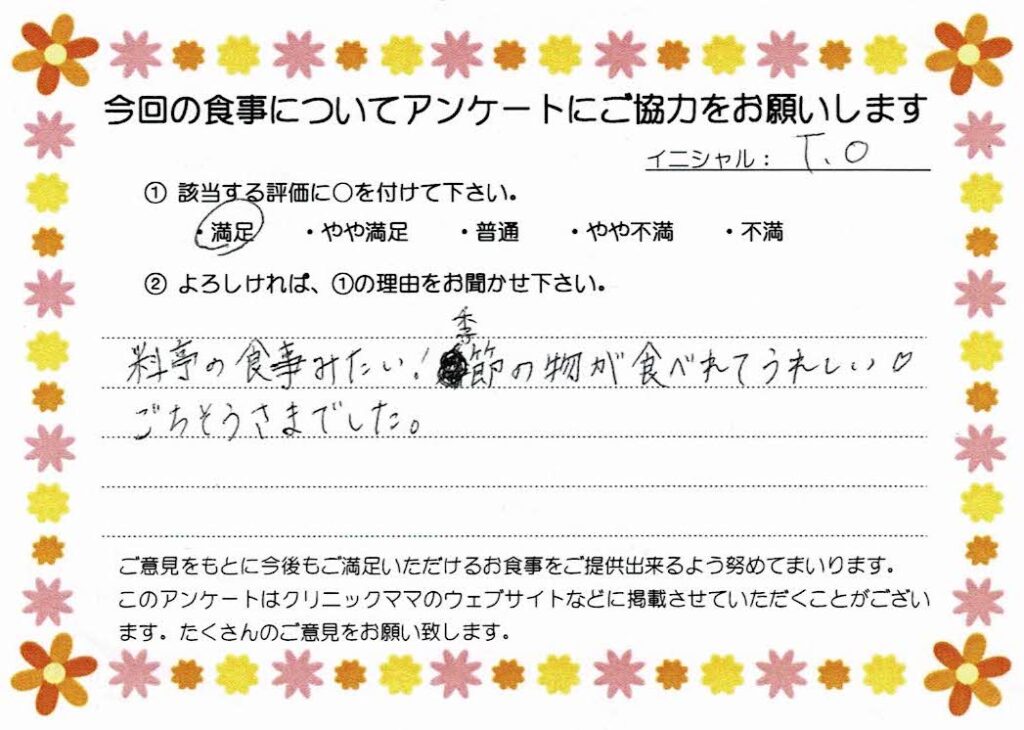 今回の食事についてアンケートにご協力をお願いします
イニシャル： T.O
① 該当する評価に○を付けて下さい。
・満足 ・やや満足 ・普通 ・やや不満 ・不満
② よろしければ、①の理由をお聞かせ下さい。
料亭の食事みたい！季節の物が食べれてうれしい♡
ごちそうさまでした。
ご意見をもとに今後もご満足いただけるお食事をご提供出来るよう努めてまいります。
このアンケートはクリニックママのウェブサイトなどに掲載させていただくことがござい
ます。たくさんのご意見をお願い致します。